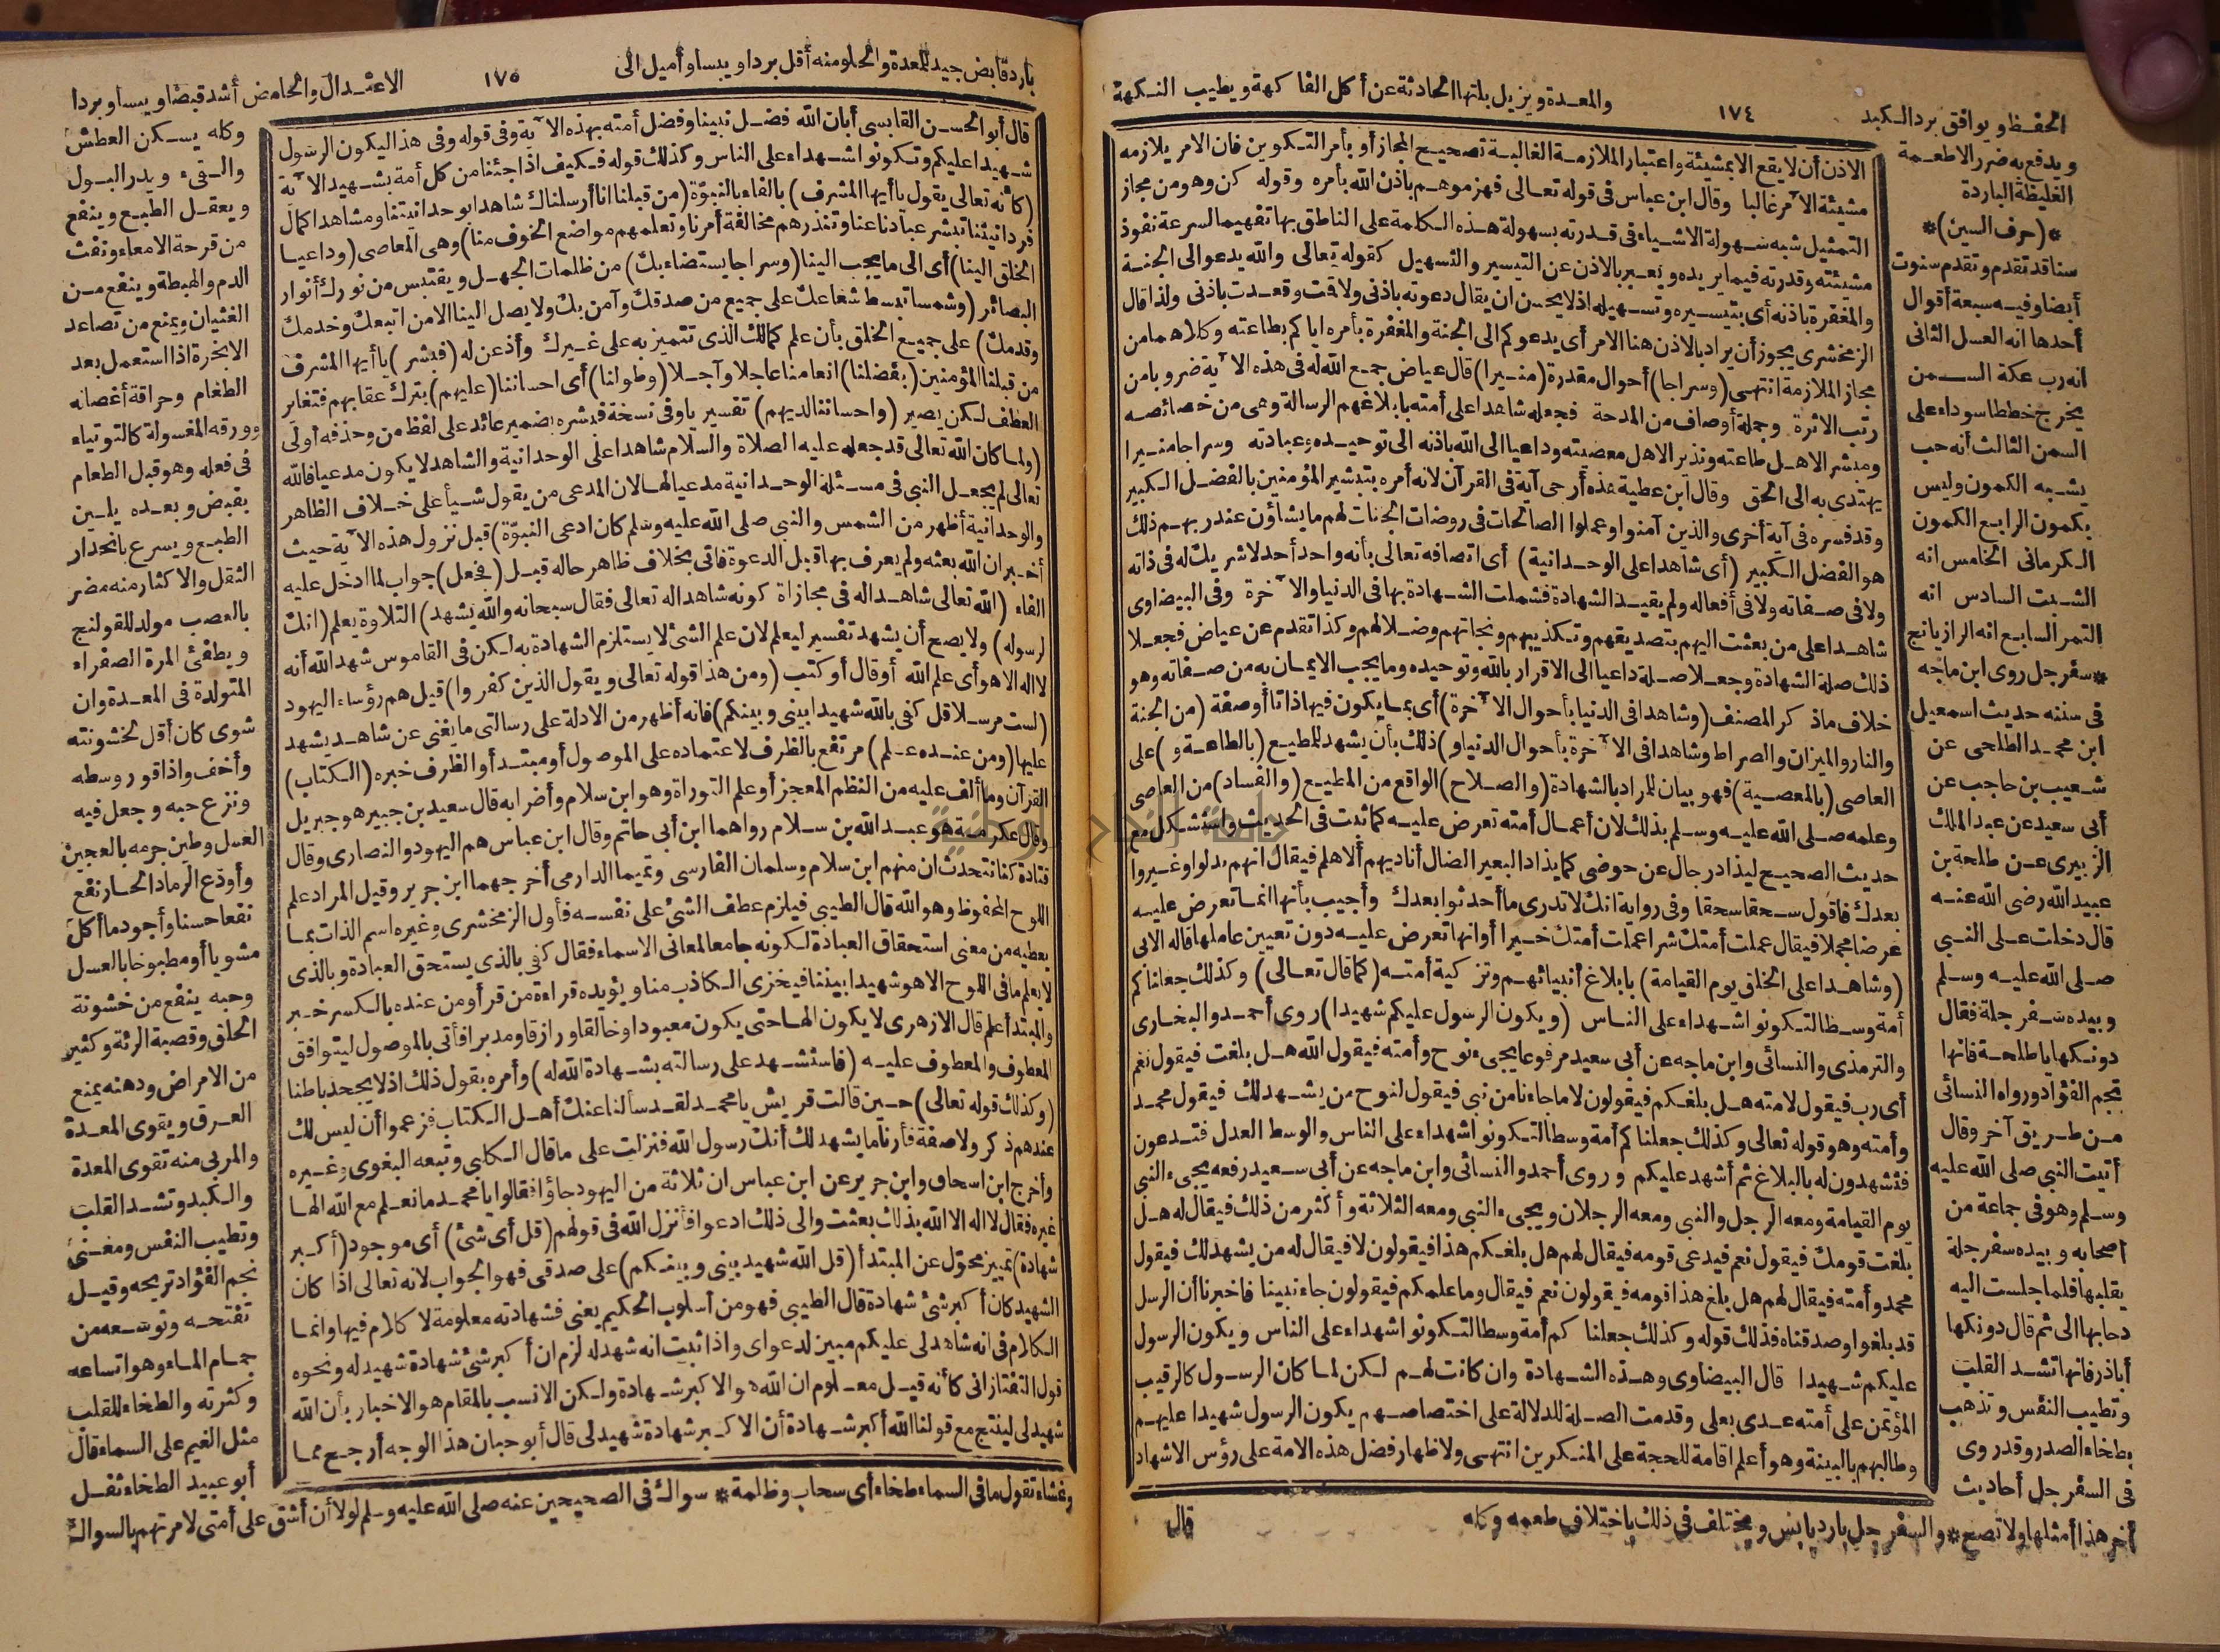 ١٧٤
الحفظ ويوافق برد الكبد
والمعدة ويزيل بلتها الحادثة عن أكل الفاكهة ويطيب النكهة
ويدفع به ضرر الاطعمة
الغليظة الباردة
*(حرف السين)*
سنا قد تقدم وتقدم سنوت
أيضا وفيه سبعة أقوال
أحدها انه العسل الثانى
انه رب عكة السمن
يخرج خططا سوداء على
السمن الثالث أنه حب
يشبه الكمون وليس
بكمون الرابع الكمون
الكرمانى الخامس انه
الشبت السادس انه
التمر السابع انه الرازيانج
*سفرجل روى ابن ماجه
فى سننه حديث اسمعيل
ابن محمد الطلحى عن
شعيب بن حاجب عن
أبى سعيد عن عبد الملك
الزبيرى عن طلحة بن
عبيد الله رضى الله عنه
قال دخلت على النبى
صلى الله عليه وسلم
وبيده سفرجلة فقال
دونكها يا طلحة فانها
تجم الفؤاد ورواه النسائى
من طريق آخر وقال
أتيت النبى صلى الله عليه
وسلم وهو فى جماعة من
أصحابه وبيده سفرجلة
يقلبها فلما جلست اليه
دحابها الى ثم قال دونكها
أباذر فانها تشد القلب
وتطيب النفس وتذهب
بطخاء الصدر وقد روى
فى السفرجل أحاديث
أخر هذا أمثلها ولا تصح* والسفرجل بارد يابس ويختلف فى ذلك باختلاف طعمه وكله
الاذن أن لا يقع الا بمشيئة واعتبار الملازمة الغالبة تصحيح المجاز أو بأمر التكوين فان الامر يلازمه
مشيئة الآمر غالبا وقال ابن عباس فى قوله تعالى فهزموهم باذن الله بأمره وقوله كن وهو من مجاز
التمثيل شبه سهولة الاشياء فى قدرته بسهولة هذه الكلمة على الناطق بها تفهيما لسرعة نفوذ
مشيئته وقدرته فيما يريده وتعبير بالاذن عن التيسير والتسهيل كقوله تعالى والله يدعو الى الجنة
والمغفرة باذنه أى بتيسيره وتسهيله اذ لا يحسن ان يقال دعوته باذنى ولا قت وقعدت باذنى ولذا قال
الزمخشرى يجوز أن يراد بالاذن هنا الامر أى يدعوكم الى الجنة والمغفرة بأمره اياكم بطاعته وكلاهما من
مجاز الملازمة انتهى (وسراجا) أحوال مقدرة (منيرا) قال عياض جمع الله له فى هذه الآية ضروبا من
رتب الاثرة وجملة أوصاف من المدحة فجعله شاهدا على أمته بابلاغهم الرسالة وهى من خصائصه
ومبشر الاهل طاعته ونذير الاهل معصيته وداعيا الى الله باذنه الى توحيده وعبادته وسراجا منيرا
يهتدى به الى الحق وقال ابن عطية هذه أرجى آية فى القرآن لانه أمره بتبشير المؤمنين بالفضل الكبير
وقد فسره فى آية أخرى والذين آمنوا وعملوا الصالحات فى روضات الجنات لهم ما يشاؤن عند ربهم ذلك
هو الفضل الكبير (أى شاهدا على الوحدانية) أى اتصافه تعالى بأنه واحد أحد لا شريك له فى ذاته
ولا فى صفاته ولا فى أفعاله ولم يقيد الشهادة فشملت الشهادة بها فى الدنيا والآخرة وفى البيضاوى
شاهدا على من بعثت اليهم بتصديقهم وتكذيبهم ونجاتهم وضلالهم وكذا تقدم عن عياض فجعلا
ذلك صلة الشهادة وجعلا صلة داعيا الى الاقرار بالله وتوحيده وما يجب الايمان به من صفاته وهو
خلاف ماذكر المصنف (وشاهدا فى الدنيا بأحوال الآخرة) أى بما يكون فيها ذاتا أو صفة (من الجنة
والنار والميزان والصراط وشاهدا فى الآخرة بأحوال الدنيا و) ذلك بأن يشهد للمطيع (بالطاعة و) على
العاصى (بالمعصية) فهو بيان للمراد بالشهادة (والصلاح) الواقع من المطيع (والفساد) من العاصى
وعلمه صلى الله عليه وسلم بذلك لان أعمال أمته تعرض عليه كما ثبت فى الحديث واستشكل مع
حديث الصحيح ليذادن رجال عن حوضى كما يذاد البعير الضال أناديهم ألا هلم فيقال انهم بدلوا وغيروا
بعدك فاقول سحقا سحقا وفى رواية انك لا تدرى ما أحدثوا بعدك وأجيب بأنها انما تعرض عليه
عرضا مجملا فيقال عملت أمتك شرا عملت أمتك خيرا أو انها تعرض عليه دون تعيين عاملها قاله الابى
(وشاهدا على الخلق يوم القيامة) بابلاغ أنبيائهم وتزكية أمته (كما قال تعالى) وكذلك جعلناكم
أمة وسطا لتكونوا شهداء على الناس (ويكون الرسول عليكم شهيدا) روى أحمد والبخارى
والترمذى والنسائى وابن ماجه عن أبى سعيد مرفوعا يجىء نوح وأمته فيقول الله هل بلغت فيقول نعم
أى رب فيقول لامته هل بلغكم فيقولون لا ما جاءنا من نبى فيقول لنوح من يشهد لك فيقول محمد
وأمته وهو قوله تعالى وكذلك جعلناكم أمة وسطا لتكونوا شهداء على الناس والوسط العدل فتدعون
فتشهدون له بالبلاغ ثم أشهد عليكم وروى أحمد والنسائى وابن ماجه عن أبى سعيد رفعه يجىء النبى
يوم القيامة ومعه الرجل والنبى ومعه الرجلان ويجىء النبى ومعه الثلاثة وأكثر من ذلك فيقال له هل
بلغت قومك فيقول نعم فيدعى قومه فيقال لهم هل بلغكم هذا فيقولون لا فيقال له من يشهد لك فيقول
محمد وأمته فيقال لهم هل بلغ هذا قومه فيقولون نعم فيقال وما علمكم فيقولون جاء نبينا فاخبرنا أن الرسل
قد بلغوا وصدقناه فذلك قوله وكذلك جعلناكم أمة وسطا لتكونوا شهداء على الناس ويكون الرسول
عليكم شهيدا قال البيضاوى وهذه الشهادة وان كانت لهم لكن لما كان الرسول كالرقيب
المؤتمن على أمته عدى بعلى وقدمت الصلة للدلالة على اختصاصهم يكون الرسول شهيدا عليهم
وطالبهم بالبينة وهو أعلم اقامة للحجة على المنكرين انتهى ولاظهار فضل هذه الامة على رؤس الاشهاد
قال
١٧٥
بارد قابض جيد للمعدة والحلو منه أقل بردا ويبسا وأميل الى
الاعتدال والحامض أشد قبضا ويبسا وبردا
قال أبو الحسن القابسى أبان الله فضل نبينا وفضل أمته بهذه الآية وفى قوله وفى هذا ليكون الرسول
شهيدا عليكم وتكونوا شهداء على الناس وكذلك قوله فكيف اذا جئنا من كل أمة بشهيد الآية
(كانه تعالى يقول يا أيها المشرف) بالفاء بالنبوة (من قبلنا انا أرسلناك شاهدا بوحدانيتنا ومشاهدا كمال
فردانيتنا تبشر عبادنا عنا وتنذرهم مخالفة أمرنا وتعلمهم مواضع الخوف منا) وهى المعاصى (وداعيا
الخلق الينا) أى الى ما يجب الينا (وسراجا يستضاء بك) من ظلمات الجهل ويقتبس من نورك أنوار
البصائر (وشمسا تبسط شعاعك على جميع من صدقك وآمن بك ولا يصل الينا الا من اتبعك وخدمك
وقدمك) على جميع الخلق بأن علم كمالك الذى تتميز به على غيرك وأذعن له (فبشر) يا أيها المشرف
من قبلنا المؤمنين (بفضلنا) انعامنا عاجلا وآجلا (وطولنا) أى احساننا (عليهم) بترك عقابهم فتغاير
العطف لكن يصير (واحساننا لديهم) تفسير يا وفى نسخة فبشره بضمير عائد على لفظ من وحذفه أولى
(ولما كان الله تعالى قد جعله عليه الصلاة والسلام شاهدا على الوحدانية والشاهد لا يكون مدعيا فالله
تعالى لم يجعل النبى فى مسئلة الوحدانية مدعيا لها لان المدعى من يقول شيأ على خلاف الظاهر
والوحدانية أظهر من الشمس والنبى صلى الله عليه وسلم كان ادعى النبوة) قبل نزول هذه الآية حيث
أخبر ان الله بعثه ولم يعرف بها قبل الدعوة فاتى بخلاف ظاهر حاله قبل (فجعل) جواب لما ادخل عليه
الفاء (الله تعالى شاهدا له فى مجازاة كونه شاهدا له تعالى فقال سبحانه والله يشهد) التلاوة يعلم (انك
لرسوله) ولا يصح أن يشهد تفسير ليعلم لان علم الشئ لا يستلزم الشهادة به لكن فى القاموس شهد الله أنه
لا اله الا هو أى علم الله أو قال أو كتب (ومن هذا قوله تعالى ويقول الذين كفروا) قيل هم رؤساء اليهود
(لست مرسلا قل كفى بالله شهيدا بينى وبينكم) فانه أظهر من الادلة على رسالتى ما يغنى عن شاهد يشهد
عليها (ومن عنده علم) مرتفع بالظرف لاعتماده على الموصول أو مبتدأ والظرف خبره (الكتاب)
القرآن وما ألف عليه من النظم المعجز أو علم التوراة وهو ابن سلام وأضرابه قال سعيد بن جبير هو جبريل
وقال عكرمة هو عبد الله بن سلام رواهما ابن أبى حاتم وقال ابن عباس هم اليهود والنصارى وقال
قتادة كنا نتحدث ان منهم ابن سلام وسلمان الفارسى وتميما الدارمى أخرجهما ابن جرير وقيل المراد علم
اللوح المحفوظ وهو الله قال الطيبى فيلزم عطف الشئ على نفسه فأول الزمخشرى وغيره اسم الذات بما
يعطيه من معنى استحقاق العبادة لكونه جامعا لمعانى الاسماء فقال كفى بالذى يستحق العبادة وبالذى
لا يعلم ما فى اللوح الا هو شهيدا بيننا فيخزى الكاذب منا ويؤيده قراءة من قرأ ومن عنده بالكسر خبر
والمبتدأ علم قال الازهرى لا يكون الها حتى يكون معبودا وخالقا ورازقا ومدبرا فأتى بالموصول ليتوافق
المعطوف والمعطوف عليه (فاستشهد على رسالته بشهادة الله له) وأمره بقول ذلك اذ لا يجحد باطنا
(وكذلك قوله تعالى) حين قالت قريش يا محمد لقد سألنا عنك أهل الكتاب فزعموا أن ليس لك
عندهم ذكر ولا صفة فأرنا ما يشهد لك أنك رسول الله فنزلت على ما قال الكلبى وتبعه البغوى وغيره
وأخرج ابن اسحاق وابن جرير عن ابن عباس ان ثلاثة من اليهود جاؤا فقالوا يا محمد ما نعلم مع الله الها
غيره فقال لا اله الا الله بذلك بعثت والى ذلك ادعوا فأنزل الله فى قولهم (قل أى شئ) أى موجود (أكبر
شهادة) تمييز محول عن المبتدأ (قل الله شهيد بينى وبينكم) على صدقى فهو الجواب لانه تعالى اذا كان
الشهيد كان أكبر شئ شهادة قال الطيبى فهو من أسلوب الحكيم يعنى فشهادته معلومة لا كلام فيها وانما
الكلام فى انه شاهد لى عليكم مبين لدعواى واذا ثبت انه شهد له لزم ان أكبر شئ شهادة شهيد له ونحوه
قول التفتازانى كأنه قيل معلوم ان الله هو الاكبر شهادة ولكن الانسب بالمقام هو الاخبار بأن الله
شهيد لى لينتج مع قولنا الله أكبر شهادة أن الاكبر شهادة شهيد لى قال أبو حيان هذا الوجه أرجح مما
وكله يسكن العطش
والقىء ويدر البول
ويعقل الطبع وينفع
من قرحة الامعاء ونفث
الدم والهيضة وينفع من
الغثيان ويمنع من تصاعد
الابخرة اذا استعمل بعد
الطعام وحراقة أغصانه
وورقه المغسولة كالتوتياء
فى فعله وهو قبل الطعام
يقبض وبعده يلين
الطبع ويسرع بانحدار
الثقل والاكثار منه مضر
بالعصب مولد للقولنج
ويطفئ المرة الصفراء
المتولدة فى المعدة وان
شوى كان أقل لخشونته
وأخف واذا قور وسطه
ونزع حبه وجعل فيه
العسل وطين جرمه بالعجين
وأودع الرماد الحار نفع
نفعا حسنا وأجود ما أكل
مشويا أو مطبوخا بالعسل
وحبه ينفع من خشونة
الحلق وقصبة الرئة وكثير
من الامراض ودهنه يمنع
العرق ويقوى المعدة
والمربى منه تقوى المعدة
والكبد وتشد القلب
وتطيب النفس ومعنى
تجم الفؤاد تريحه وقيل
تفتحه وتوسعه من
جمام الماء وهو اتساعه
وكثرته والطخاء للقلب
مثل الغيم على السماء قال
أبو عبيد الطخاء ثقل
وغشاء تقول ما فى السماء طخاء أى سحاب وظلمة* سواك فى الصحيحين عنه صلى الله عليه وسلم لولا أن أشق على أمتى لامرتهم بالسواك